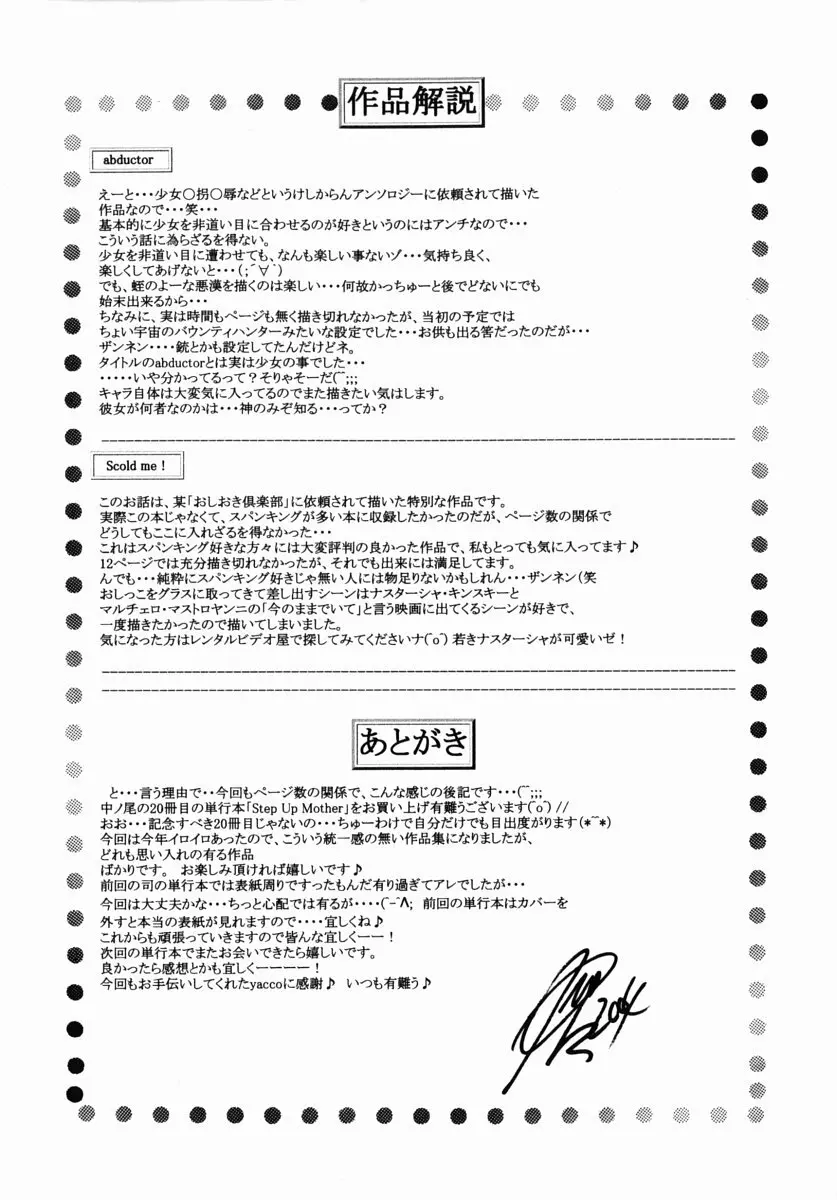 作品解説
abductor
えーと・・・少女○拐○辱などというけしからんアンソロジーに依頼されて描いた
作品なので・・・笑・・・
基本的に少女を非道い目に合わせるのが好きというのにはアンチなので・・・
こういう話に為らざるを得ない。
少女を非道い目に遭わせても、なんも楽しい事ないゾ・・・気持ち良く、
楽しくしてあげないと・・・(;´∀`)
でも、蛭のよーな悪漢を描くのは楽しい・・・何故かっちゅーと後でどないにでも
始末出来るから・・・
ちなみに、実は時間もページも無く描き切れなかったが、当初の予定では
ちょい宇宙のバウンティハンターみたいな設定でした・・・お供も出る筈だったのだが・・・
ザンネン・・・・銃とかも設定してたんだけどネ。
タイトルのabductorとは実は少女の事でした・・・
・・・・・いや分かってるって？そりゃそーだ(^^;;;
キャラ自体は大変気に入ってるのでまた描きたい気はします。
彼女が何者なのかは・・・神のみぞ知る・・・ってか？
Scold me！
このお話は、某「おしおき倶楽部」に依頼されて描いた特別な作品です。
実際この本じゃなくて、スパンキングが多い本に収録したかったのだが、ページ数の関係で
どうしてもここに入れざるを得なかった・・・
これはスパンキング好きな方々には大変評判の良かった作品で、私もとっても気に入ってます♪
12ページでは充分描き切れなかったが、それでも出来には満足してます。
んでも・・・純粋にスパンキング好きじゃ無い人には物足りないかもしれん・・・ザンネン(笑
おしっこをグラスに取ってきて差し出すシーンはナスターシャ・キンスキーと
マルチェロ・マストロヤンニの「今のままでいて」と言う映画に出てくるシーンが好きで、
一度描きたかったので描いてしまいました。
気になった方はレンタルビデオ屋で探してみてくださいナ(^o^) 若きナスターシャが可愛いゼ！
あとがき
と・・・言う理由で・・今回もページ数の関係で、こんな感じの後記です・・・(^^;;;
中ノ尾の20冊目の単行本「Step Up Mother」をお買い上げ有難うございます(^o^)//
おお・・・記念すべき20冊目じゃないの・・・ちゅーわけで自分だけでも目出度がります(*^^*)
今回は今年イロイロあったので、こういう統一感の無い作品集になりましたが、
どれも思い入れの有る作品
ばかりです。 お楽しみ頂ければ嬉しいです♪
前回の司の単行本では表紙周りですったもんだ有り過ぎてアレでしたが・・・
今回は大丈夫かな・・・ちっと心配では有るが・・・・(^-^; 前回の単行本はカバーを
外すと本当の表紙が見れますので・・・・宜しくね♪
これからも頑張っていきますので皆んな宜しくーー！
次回の単行本でまたお会いできたら嬉しいです。
良かったら感想とかも宜しくーーーー！
今回もお手伝いしてくれたyaccoに感謝♪ いつも有難う♪
2004